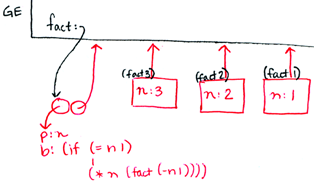 GE
fact:
(fact 3) (fact 2) (fact 1)
n:3 n:2 n:1
p: n
b: (if (= n 1)
1
(* n (fact (- n 1))))